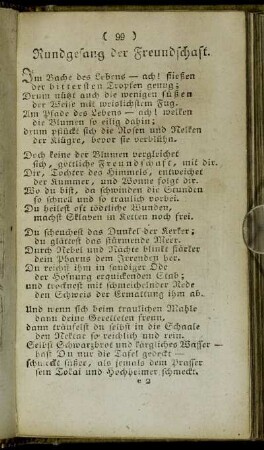 ( 99 )
Rundgesang der Freundschaft.
Im Bache des Lebens — ach! fließen
der bittersten Tropfen genug;
Drum nüzt auch die wenigen süßen
der Weise mit weislichstem Fug.
Am Pfade des Lebens — ach! welken
die Blumen so eilig dahin;
drum pflückt sich die Rosen und Nelken
der Klügre, bevor sie verblühn.
Doch keine der Blumen vergleichet
sich, göttliche Freundschaft, mit dir.
Dir, Tochter des Himmels, entweichet
der Kummer, und Wonne folgt dir.
Wo du bist, da schwinden die Stunden
so schnell und so traulich vorbei.
Du heilest oft tödtliche Wunden,
machst Sklaven in Ketten noch frei.
Du scheuchest das Dunkel der Kerker;
du glättest das stürmende Meer.
Durch Nebel und Nächte blinkt stärker
dein Pharus dem Irrenden her.
Du reichst ihm in sandiger Öde
der Hofnung erquickenden Stab;
und trocknest mit schmeichelnder Rede
den Schweis der Ermattung ihm ab.
Und wenn sich beim traulichen Mahle
dann deine Geweiheten freun,
dann träufelst du selbst in die Schaale
den Nektar so reichlich und rein.
Selbst Schwarzbrot und kärgliches Wasser —
hast Du nur die Tafel gedeckt —
schmeckt süßer, als jemals dem Prasser
sein Tokai und Hochheimer schmeckt.
e 2